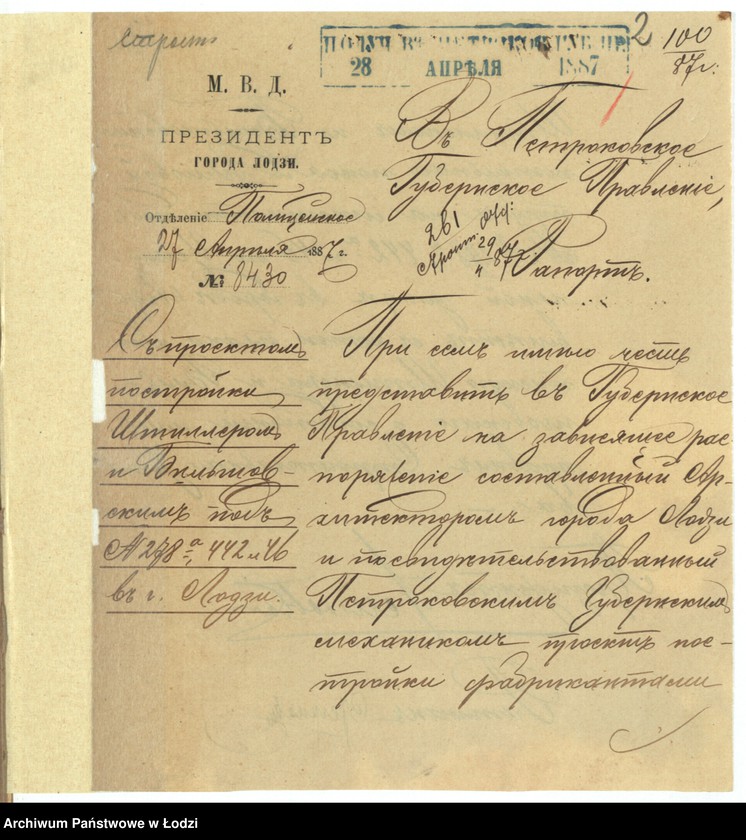 ПОЛУЧ. ВЪ ПЕТРОКОВ. ГУБ. ПР.
28 АПРѢЛЯ 1887
2
100
87 г.
М. В. Д.
ПРЕЗИДЕНТЪ
ГОРОДА ЛОДЗИ.
Отдѣленіе Полицейское
27 Апрѣля 1887 г.
№ 8430
Въ Петроковское
Губернское Правленіе,
261
29
4 87 г.
Рапортъ.
Съ проектомъ
постройки
Штиллеромъ
и Бѣльшов-
скимъ подъ
№ 278а, 442 и 46
въ г. Лодзи.
При семъ имѣю честь
представить въ Губернское
Правленіе на зависящее рас-
поряженіе составленный Ар-
хитекторомъ города Лодзи
и посвидѣтельствованный
Петроковскимъ Губернскимъ
механикомъ проектъ пос-
тройки фабрикантами
Archiwum Państwowe w Łodzi